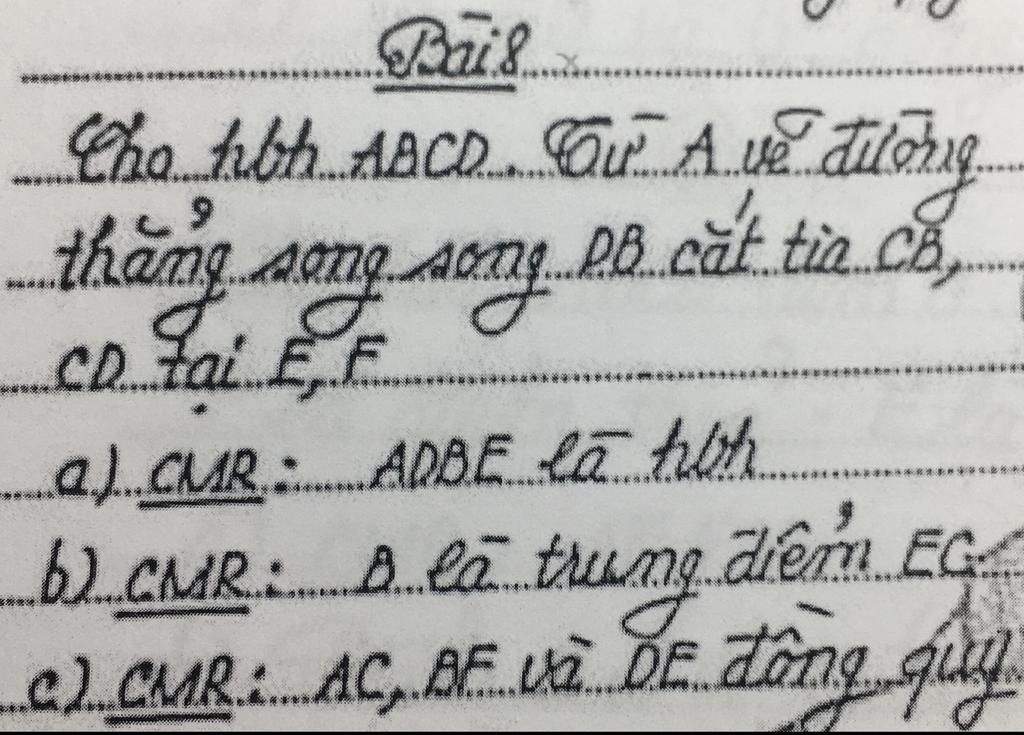 Bài 8
Cho hbh ABCD. Từ A vẽ đường
thẳng song song DB cắt tia CB,
CD tại E, F
a) CMR: ADBE là hbh
b) CMR: B là trung điểm EC
c) CMR: AC, BF và DE đồng quy